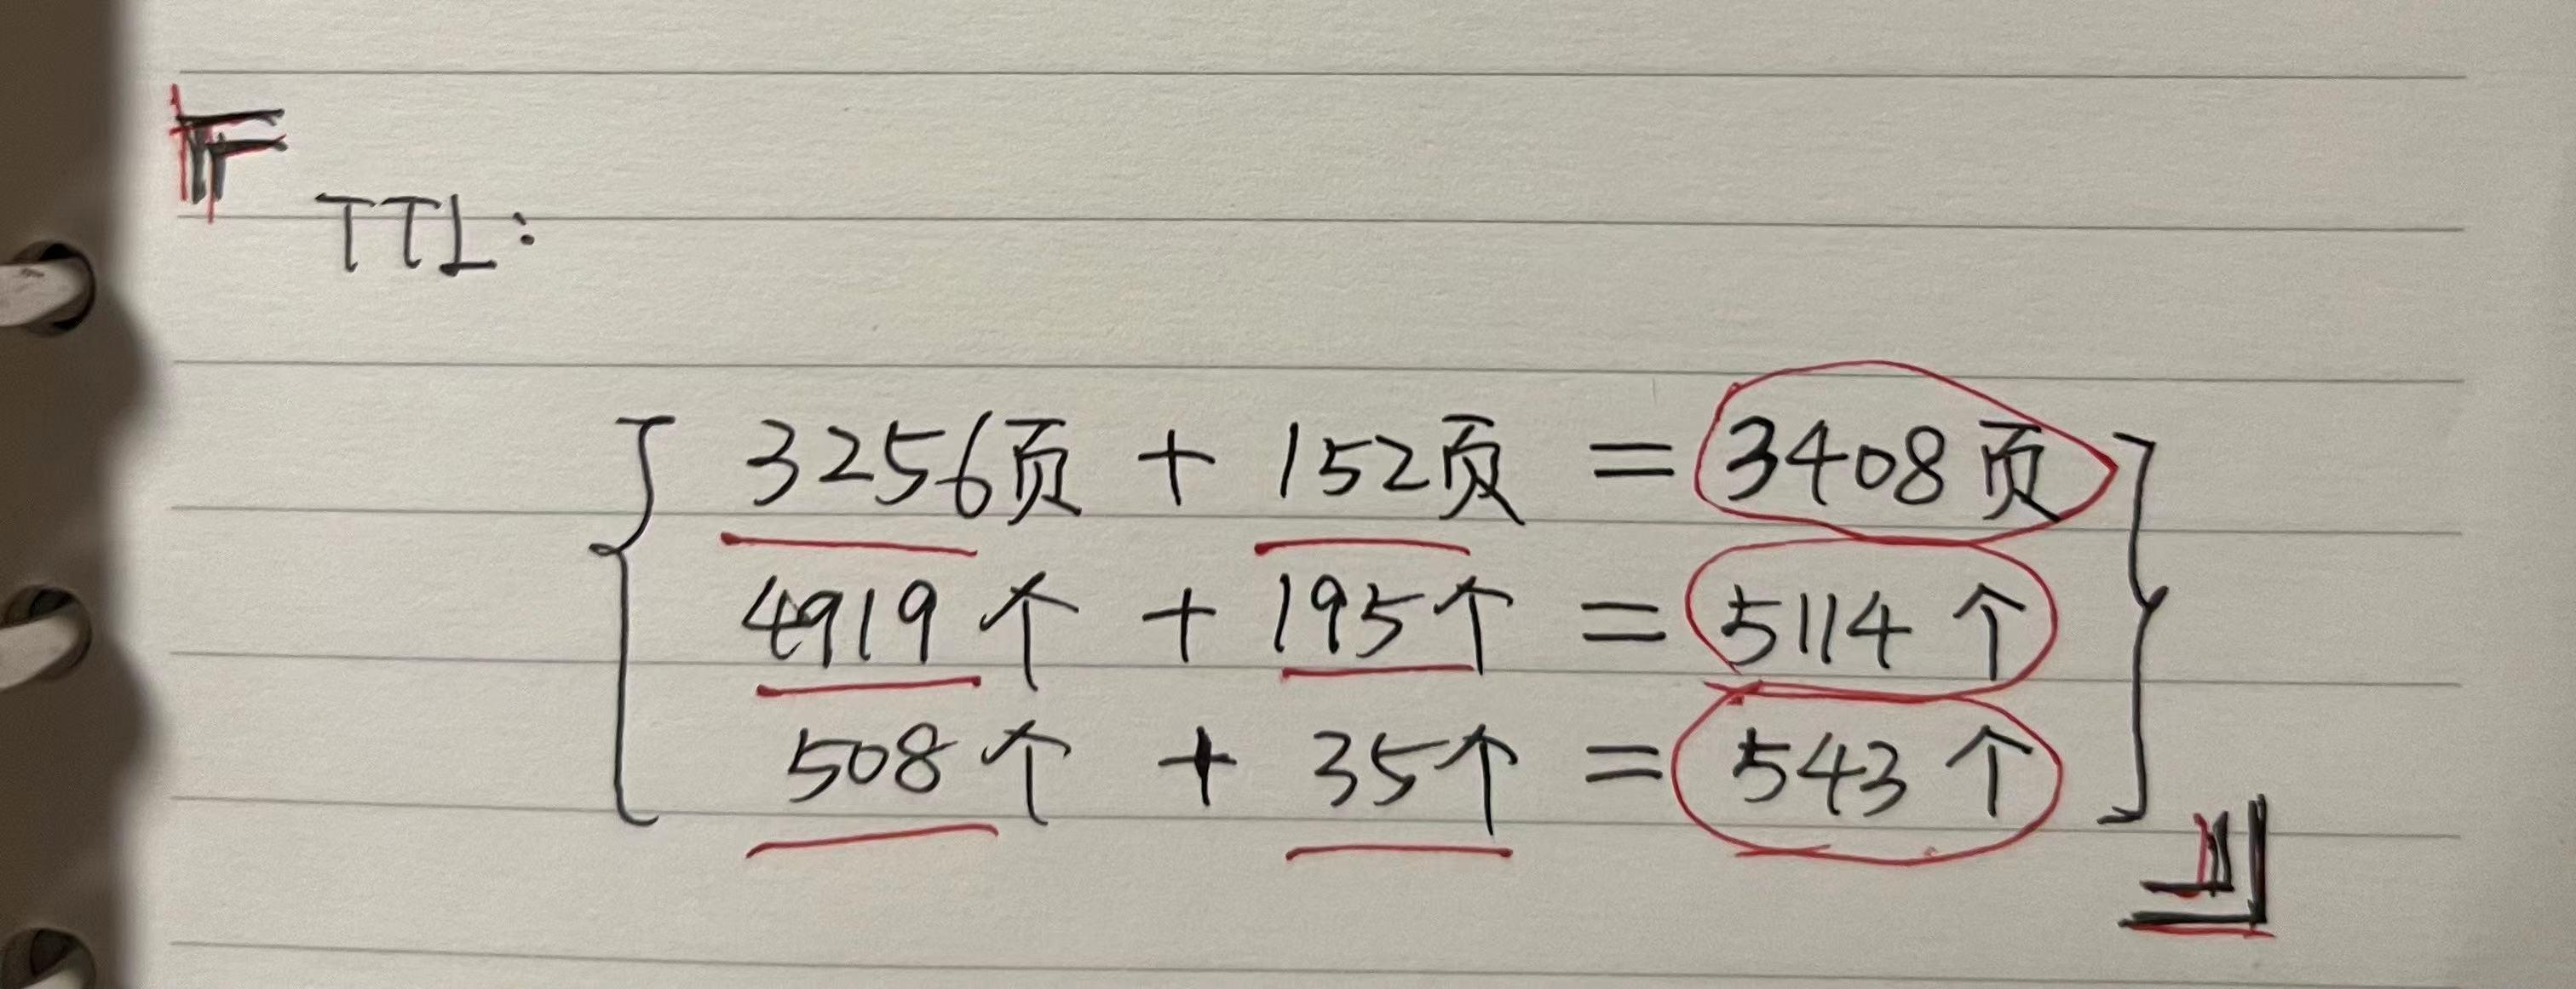 TTL:
3256页 + 152页 = 3408页
4919个 + 195个 = 5114个
508个 + 35个 = 543个